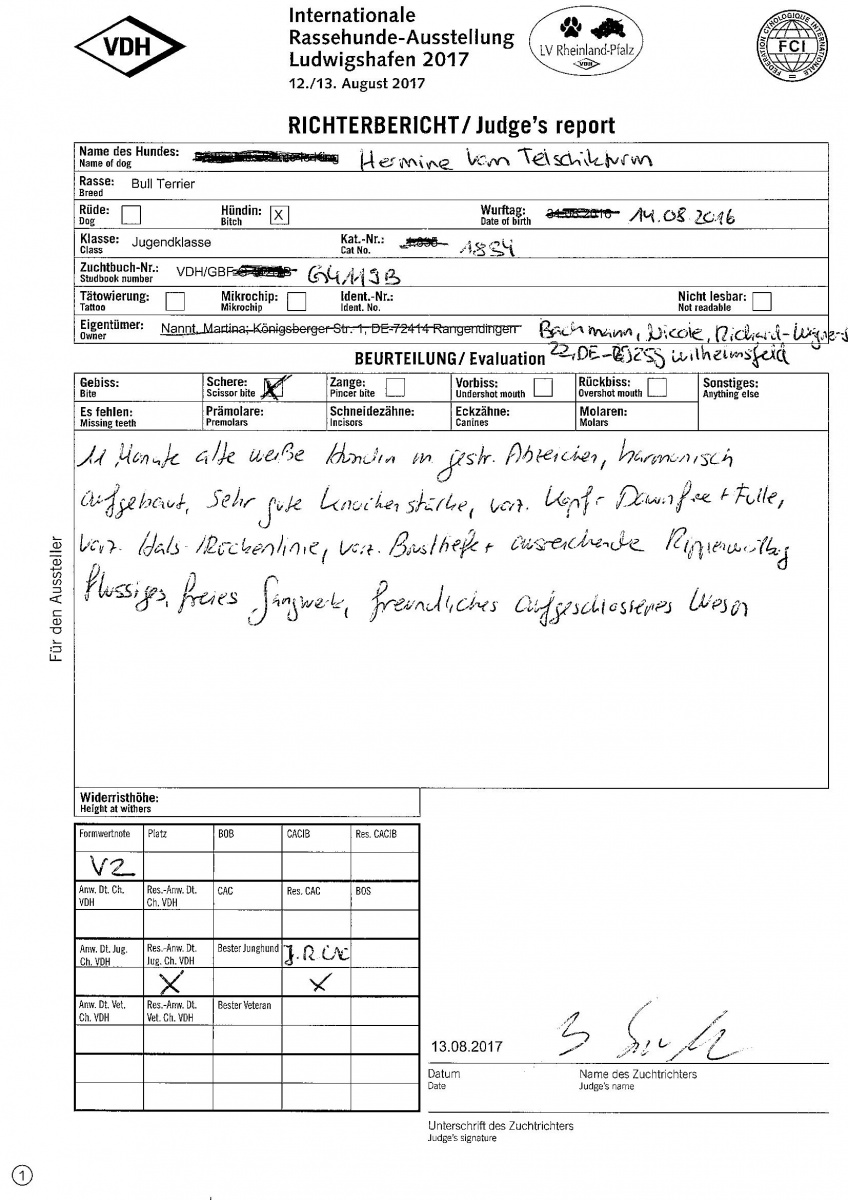 VDH
Internationale
Rassehunde-Ausstellung
Ludwigshafen 2017
12./13. August 2017
LV Rheinland-Pfalz
VDH
FEDERATION CYNOLOGIQUE INTERNATIONALE
FCI
RICHTERBERICHT/Judge's report
Name des Hundes:
Name of dog
Hermine vom Teltschikturm
Rasse: Bull Terrier
Breed
Rüde: Hündin: X Wurftag: 14.08.2016
Dog Bitch Date of birth
Klasse: Jugendklasse Kat.-Nr.: 1834
Class Cat No.
Zuchtbuch-Nr.: VDH/GBF
Studbook number
Tätowierung: Mikrochip: Ident.-Nr.: Nicht lesbar:
Tattoo Mikrochip Ident. No. Not readable
Eigentümer: Nannt, Martina; Königsberger Str. 1, DE-72414 Rangendingen Bachmann, Nicole, Richard-Wagners
Owner
22, DE- Wilhelmsfeld
BEURTEILUNG/Evaluation
Gebiss: Schere: X Zange: Vorbiss: Rückbiss: Sonstiges:
Bite Scissor bite Pincer bite Undershot mouth Overshot mouth Anything else
Es fehlen: Prämolare: Schneidezähne: Eckzähne: Molaren:
Missing teeth Premolars Incisors Canines Molars
11 Monate alte weiße Hündin m gestr. Abzeichen, harmonisch
aufgebaut, sehr gute Knochenstärke, vorz. Kopf- Downface + Fülle,
vorz. Hals-Rückenlinie, vorz. Brusttiefe + ausreichende Rippenwölbung
flüssiges, freies Gangwerk, freundliches aufgeschlossenes Wesen
Für den Aussteller
Widerristhöhe:
Height at withers
Formwertnote Platz BOB CACIB Res. CACIB
V2
Anw. Dt. Ch. VDH Res.-Anw. Dt. Ch. VDH CAC Res. CAC BOS
Anw. Dt. Jug. Ch. VDH Res.-Anw. Dt. Jug. Ch. VDH Bester Junghund J.R.CAC
X X
Anw. Dt. Vet. Ch. VDH Res.-Anw. Dt. Vet. Ch. VDH Bester Veteran
13.08.2017
Datum Name des Zuchtrichters
Date Judge's name
Unterschrift des Zuchtrichters
Judge's signature
1